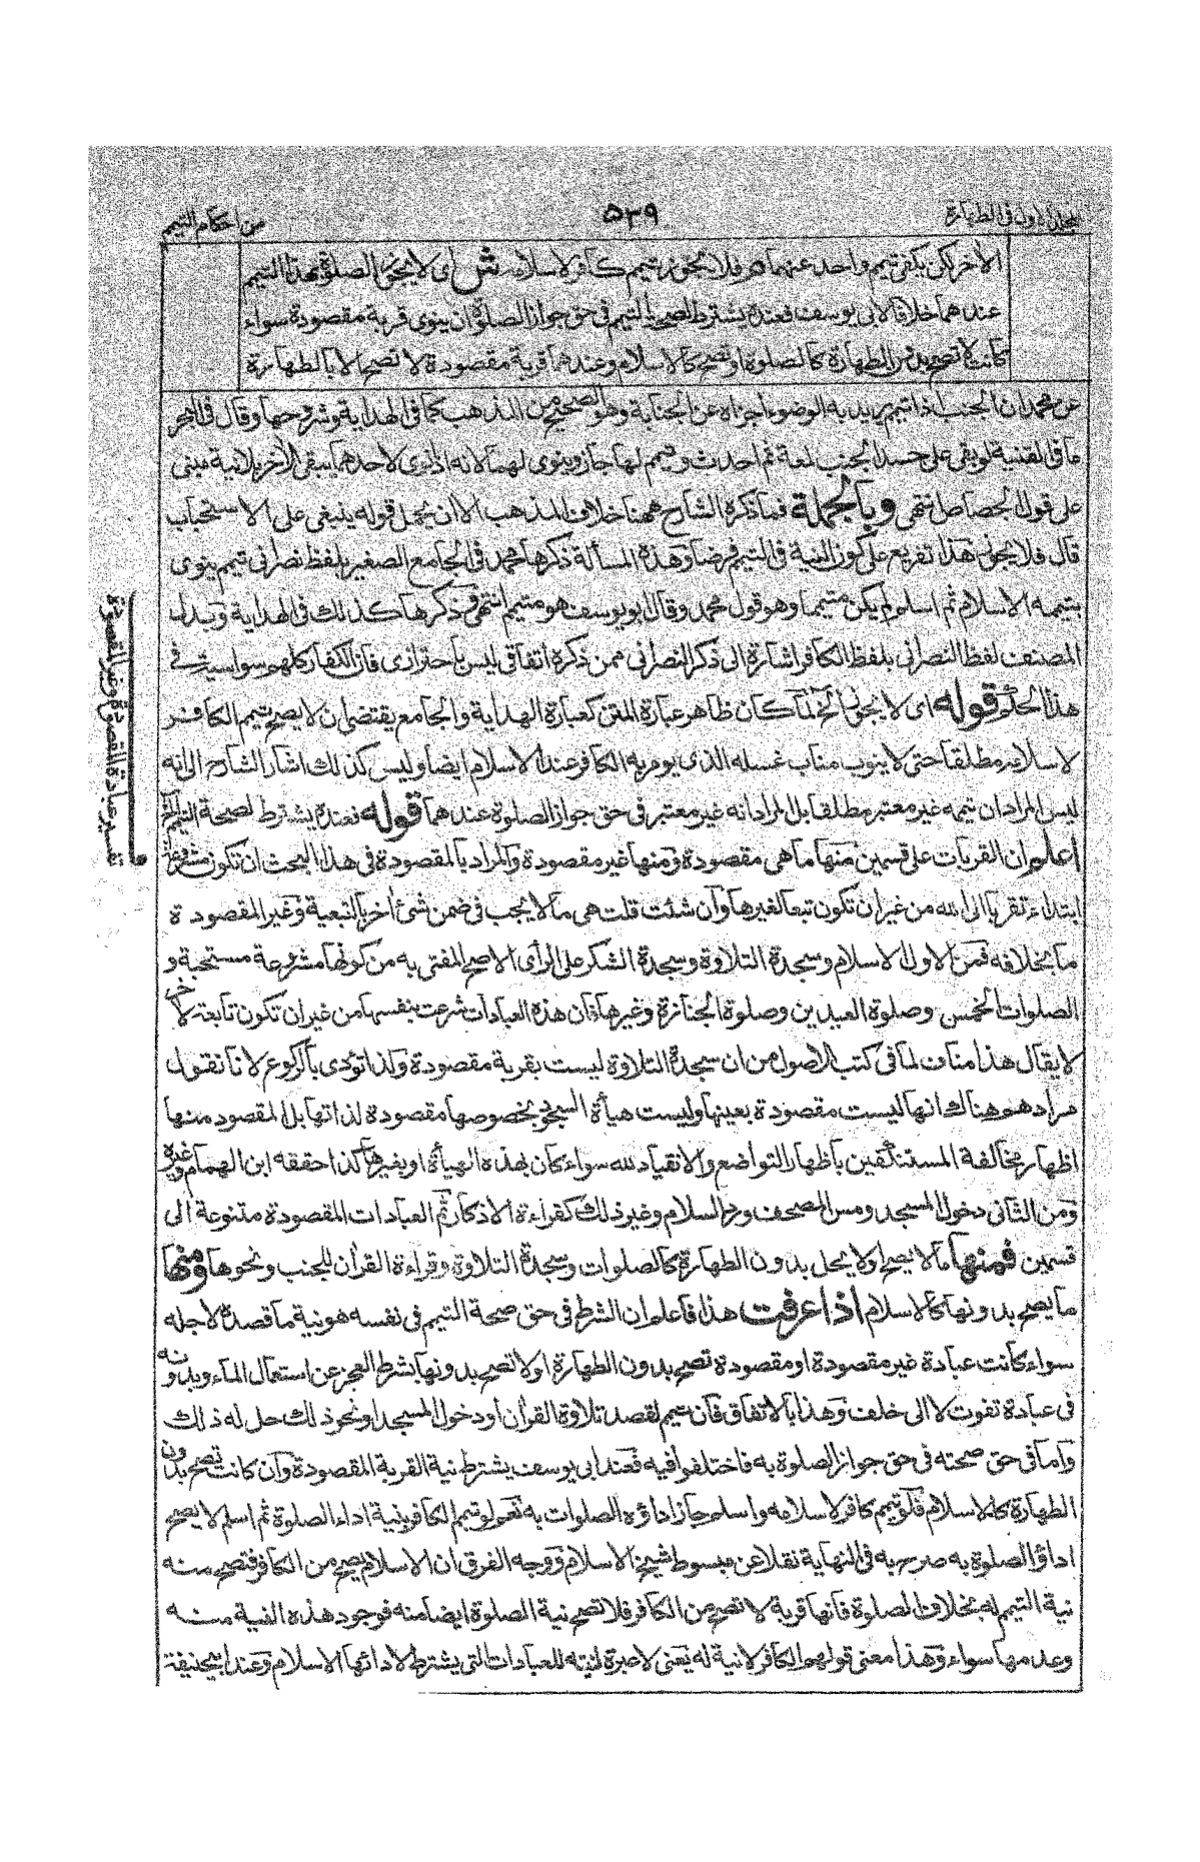 مجلد الاول فى الطهارة
٥٣٩
من احكام التيمم
الأخر لكن يكفى تيمم واحد عنهما هر فلا يجوز تيمم كافر لاسلامه ش اى لا يجوز الصلوة بهذا التيمم
عندهما خلافا لابى يوسف فعنده يشترط لصحة التيمم فى حق جواز الصلوة ان ينوى قربة مقصودة سواء
كانت لا تصح بدون الطهارة كالصلوة او تصح كالاسلام وعندهما قربة مقصودة لا تصح الا بالطهارة
عن محمد ان الجنب اذا تيمم يريد به الوضوء اجزاه عن الجنابة وهو الصحيح من المذهب كما فى الهداية وشروحها وقال فى البحر
ما فى القنية لو بقى على جسد الجنب لمعة ثم احدث وتيمم لهما جاز وينوى لهما لانه اذا نوى لاحدهما يبقى الأخر بلا نية مبنى
على قول الجصاص انتهى وبالجملة فما ذكره الشارح ههنا خلاف المذهب الا ان يحمل قوله ينبغى على الاستحباب
قال فلا يجوز هذا تفريع على كون النية فى التيمم فرضا وهذه المسألة ذكرها محمد فى الجامع الصغير بلفظ نصرانى تيمم ينوى
بتيممه الاسلام ثم اسلم لم يكن متيمما وهو قول محمد وقال ابو يوسف هو متيمم انتهى وذكرها كذلك فى الهداية وبدل
المصنف لفظ النصرانى بلفظ الكافر اشارة الى ان ذكر النصرانى ممن ذكره اتفاقى ليس باحترازى فان الكفار كلهم سواسية فى
هذا الحكم قوله اى لا يجوز الخ لما كان ظاهر عبارة المتن كعبارة الهداية والجامع يقتضى ان لا يصح تيمم الكافر
لاسلامه مطلقا حتى لا ينوب مناب غسله الذى يؤمر به الكافر عند الاسلام ايضا وليس كذلك اشار الشارح الى انه
ليس المراد ان تيممه غير معتبر مطلقا بل المراد انه غير معتبر فى حق جواز الصلوة عندهما قوله فعنده يشترط لصحة التيمم الخ
اعلم ان القربات على قسمين منها ما هى مقصودة ومنها غير مقصودة والمراد بالمقصودة فى هذا البحث ان تكون مشروعة
ابتداء تقربا الى الله من غير ان تكون تبعا لغيرها وان شئت قلت هى ما لا يجب فى ضمن شئ أخر بالتبعية وغير المقصودة
ما بخلافه فمن الاول الاسلام وسجدة التلاوة وسجدة الشكر على الرأى الاصح المفتى به من كونها مشروعة مستحبة و
الصلوات الخمس وصلوة العيدين وصلوة الجنازة وغيرها فان هذه العبادات شرعت بنفسها من غير ان تكون تابعة لأخر
لا يقال هذا مناف لما فى كتب الاصول من ان سجدة التلاوة ليست بقربة مقصودة ولذا تؤدى بالركوع لانا نقول
مرادهم هناك انها ليست مقصودة بعينها وليست هيأة السجود بخصوصها مقصودة لذاتها بل المقصود منها
اظهار مخالفة المستنكفين باظهار التواضع والانقياد لله سواء كان بهذه الهيأة او بغيرها كذا حققه ابن الهمام وغيره
ومن الثانى دخول المسجد ومس المصحف ورد السلام وغير ذلك كقراءة الاذكار ثم العبادات المقصودة متنوعة الى
قسمين فمنها ما لا يصح او لا يحل بدون الطهارة كالصلوات وسجدة التلاوة وقراءة القرأن للجنب ونحوها ومنها
ما يصح بدونها كالاسلام اذا عرفت هذا فاعلم ان الشرط فى حق صحة التيمم فى نفسه هو نية ما قصد لاجله
سواء كانت عبادة غير مقصودة او مقصودة تصح بدون الطهارة او لا تصح بدونها بشرط العجز عن استعمال الماء وبدونه
فى عبادة تفوت لا الى خلف وهذا بالاتفاق فان تيمم لقصد تلاوة القرأن او دخول المسجد او نحو ذلك حل له ذلك
واما فى حق صحته فى حق جواز الصلوة به فاختلفوا فيه فعند ابى يوسف يشترط نية القربة المقصودة وان كانت تصح بدون
الطهارة كالاسلام فلو تيمم كافر لاسلامه واسلم جاز اداؤه الصلوات به نعم لو تيمم الكافر بنية اداء الصلوة ثم اسلم لا يصح
اداؤ الصلوة به صرح به فى النهاية نقلا عن مبسوط شيخ الاسلام ووجه الفرق ان الاسلام يصح من الكافر فتصح منه
نية التيمم له بخلاف الصلوة فانها قربة لا تصح من الكافر فلا تصح نية الصلوة ايضا منه فوجود هذه النية منه
وعدمها سواء وهذا معنى قولهم الكافر لا نية له يعنى لا عبرة لنيته للعبادات التى يشترط لادائها الاسلام وعند ابى حنيفة
تفسير عبادة المقصودة وغير المقصودة